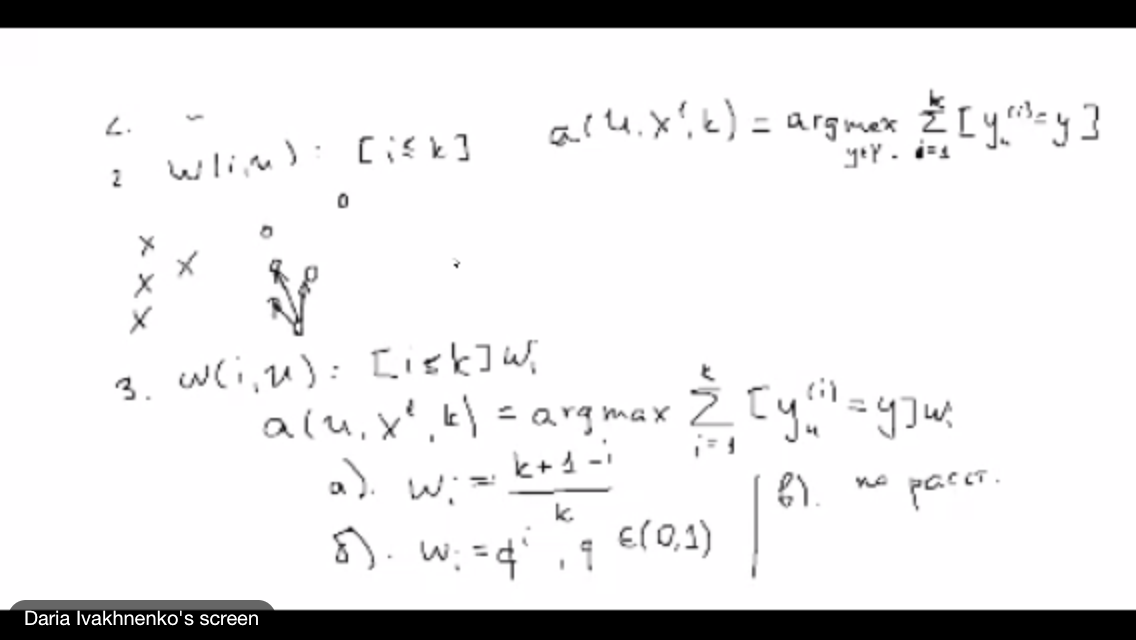 2. w(i,u): [i ≤ k]
a(u, xˡ, k) = argmax y∈Y. Σ i=1 k [yᵤ⁽ⁱ⁾ = y]
3. w(i,u): [i ≤ k] wᵢ
a(u, xˡ, k) = argmax Σ i=1 k [yᵤ⁽ⁱ⁾ = y] wᵢ
а). wᵢ = (k+1-i)/k
б). wᵢ = qⁱ, q ∈ (0,1)
в). по расст.
Daria Ivakhnenko's screen